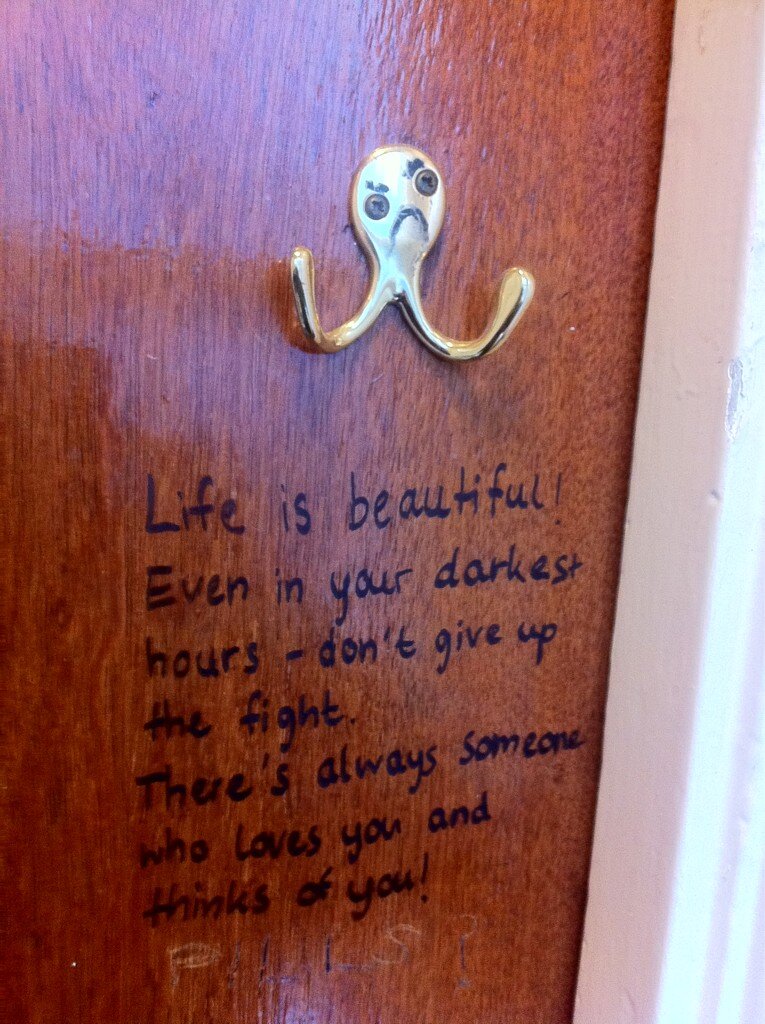 Life is beautiful!
Even in your darkest
hours - don't give up
the fight.
There's always someone
who loves you and
thinks of you!
PILLS?